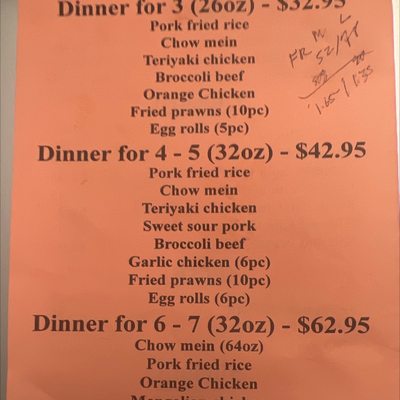 Dinner for 3 (26oz) - $32.95
Pork fried rice
Chow mein
Teriyaki chicken
Broccoli beef
Orange Chicken
Fried prawns (10pc)
Egg rolls (5pc)
M L
FR 52/77
1.65/1.35
Dinner for 4 - 5 (32oz) - $42.95
Pork fried rice
Chow mein
Teriyaki chicken
Sweet sour pork
Broccoli beef
Garlic chicken (6pc)
Fried prawns (10pc)
Egg rolls (6pc)
Dinner for 6 - 7 (32oz) - $62.95
Chow mein (64oz)
Pork fried rice
Orange Chicken